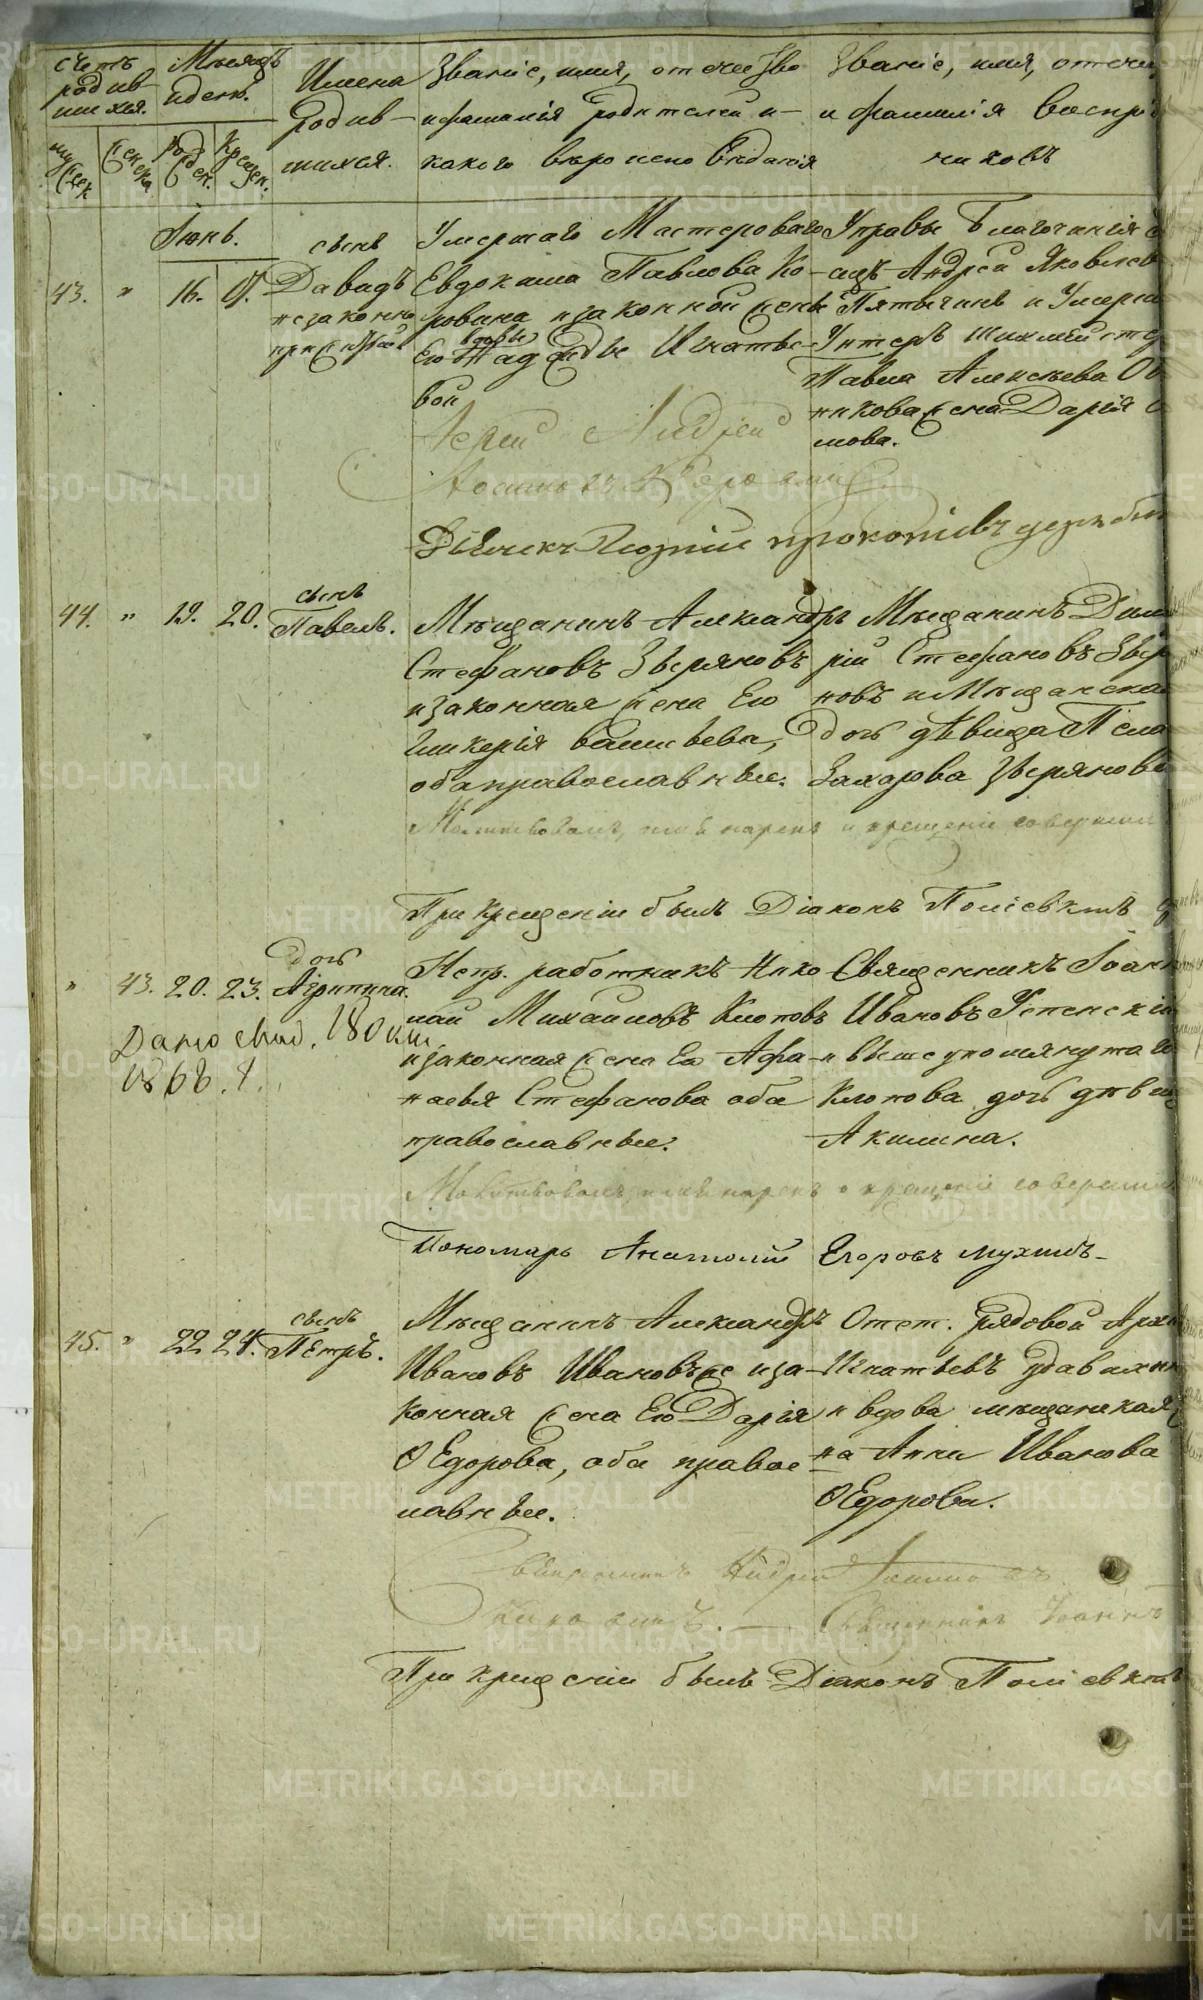 счетъ родив-шихся.
Мѣсяцъ и день.
Имена родив-шихся.
Званіе, имя, отечество и фамилія родителей и какого вѣроисповѣданія
Званіе, имя, отечес и фамилія воспріе чиковъ
мужеск женска рожден. крещен.
Іюнь.
43. " 16. 17.
сынъ
Давидъ
незаконно
прижитый
Умершаго Мастероваго
Евдокима Павлова Ко-
ровина и законной жены
Его вдовы Надежды Игнатье-
вой
Управы Благочинія
Андрей Яковлев
Пятыгинъ и Умерша
Унтеръ Шихмейстер
Павла Алексѣева
никова жена Дарія
мова.
Іерей Андрей
Іоанновъ
Дьячекъ Георгій Прокопіевъ
44. " 19. 20.
сынъ
Павелъ.
Мѣщанинъ Александръ
Стефановъ Зверяновъ
и законная жена Его
Гликерія Васильева,
оба православные.
Мѣщанинъ Дими
рій Стефановъ Звер
новъ и Мѣщанская
дочь дѣвица Пела
Захарова Зверянова
Молитвовалъ, имя нарекъ и крещеніе совершилъ
При крещеніи былъ Діаконъ Поліевктъ
" 43. 20. 23.
дочь
Агрипина.
Дано свид. 180
1868. г.
Непр. работникъ Нико-
лай Михайловъ Клоповъ
и законная жена Ея Афа-
насья Стефанова оба
православные.
Священникъ Іоанн
Ивановъ Успенскій
и вышеупомянутаго
Клопова дочь дѣвиц
Акилина.
Молитвовалъ, имя нарекъ и крещеніе совершилъ
Пономарь Анатолій Егоровъ Мухинъ
45. " 22 24.
сынъ
Петръ.
Мѣщанинъ Александръ
Ивановъ Ивановъ же и за-
конная жена Его Дарія
Ѳедорова, оба правос-
лавные.
Отст. рядовой Архи
Игнатьевъ
и вдова мѣщанская
на Анна Иванова
Ѳедорова.
Священникъ Андрей Іоанновъ
Священникъ Іоаннъ
При крещеніи былъ Діаконъ Поліевктъ
METRIKI.GASO-URAL.RU